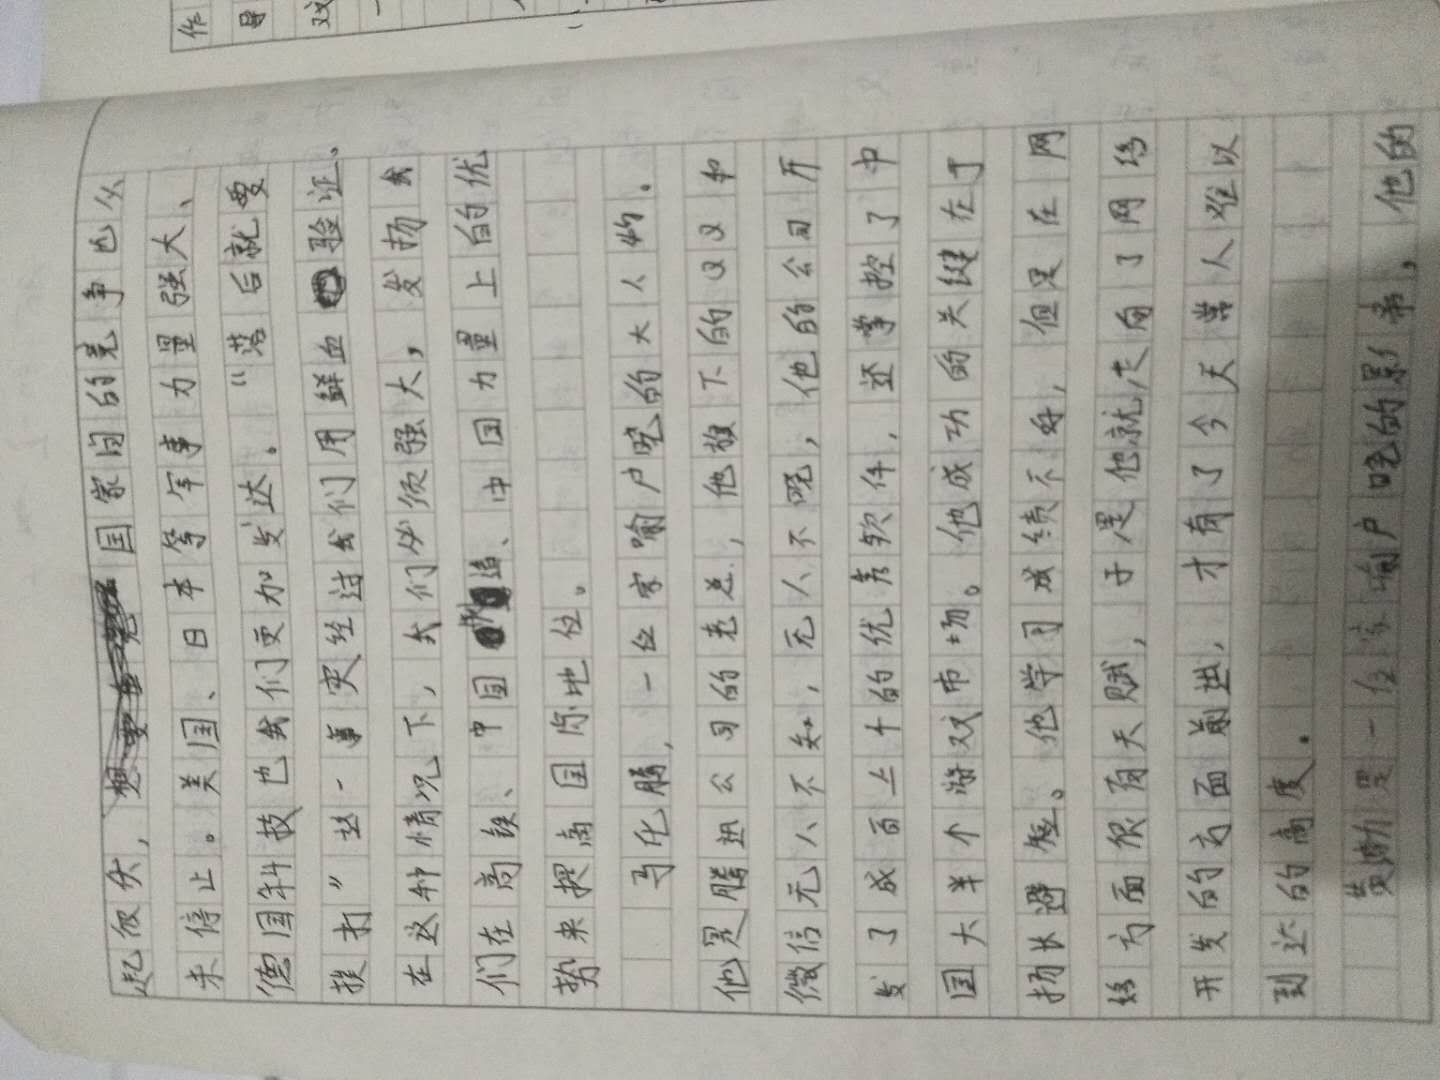 起彼伏，国家间的竞争也从
未停止。美国、日本等军事力量强大、
德国科技也我们更加发达。“落后就要
挨打”这一事实经过我们用鲜血验证、
在这种情况下，我们必须强大，发扬我
们在高铁、中国制造、中国力量上的优
势来提高国际地位。
马化腾，一位家喻户晓的大人物。
他是腾迅公司的老总，他旗下的QQ和
微信无人不知，无人不晓，他的公司开
发了成百上千的优秀软件，还掌控了中
国大半个游戏市场。他成功的关键在于
扬长避短。他学习成绩不好，但是在网
络方面很有天赋，于是他就走向了网络
开发的方面前进，才有了今天常人难以
到达的高度。
黄渤是一位家喻户晓的影帝，他的
作
导